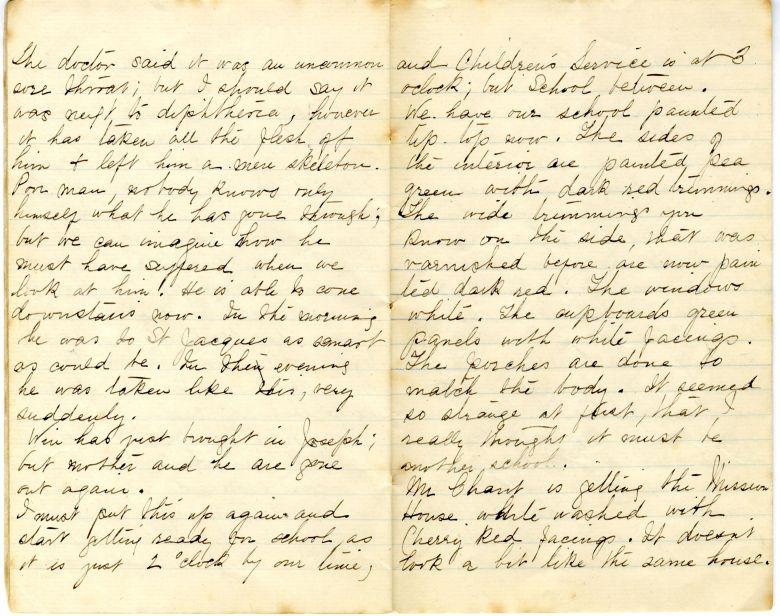 The doctor said it was an uncommon
sore throat; but I should say it
was next to diphtheria, however
it has taken all the flesh of
him + left him a mere skeleton.
Poor man, nobody knows only
himself what he has gone through;
but we can imagine how he
must have suffered when we
look at him. He is able to come
downstairs now. In the morning
he was to St Jacques as smart
as could be. In the evening
he was taken like this, very
suddenly.
Win has just brought in Joseph;
but mother and he are gone
out again.
I must put this up again and
start getting ready for school as
it is just 2 o'clock by our time,
and Children's Service is at 3
oclock; but School between.
We have our school painted
tip top now. The sides of
the interior are painted pea
green with dark red trimmings.
The wide trimmings you
know on the side, that was
varnished before are now pain
ted dark red. The windows
white. The cupboards green
panels with white facings.
The porches are done to
match the body. It seemed
so strange at first, that I
really thought it must be
another school.
Mr Chant is getting the Mission
House white washed with
Cherry Red facings. It doesn't
look a bit like the same house.